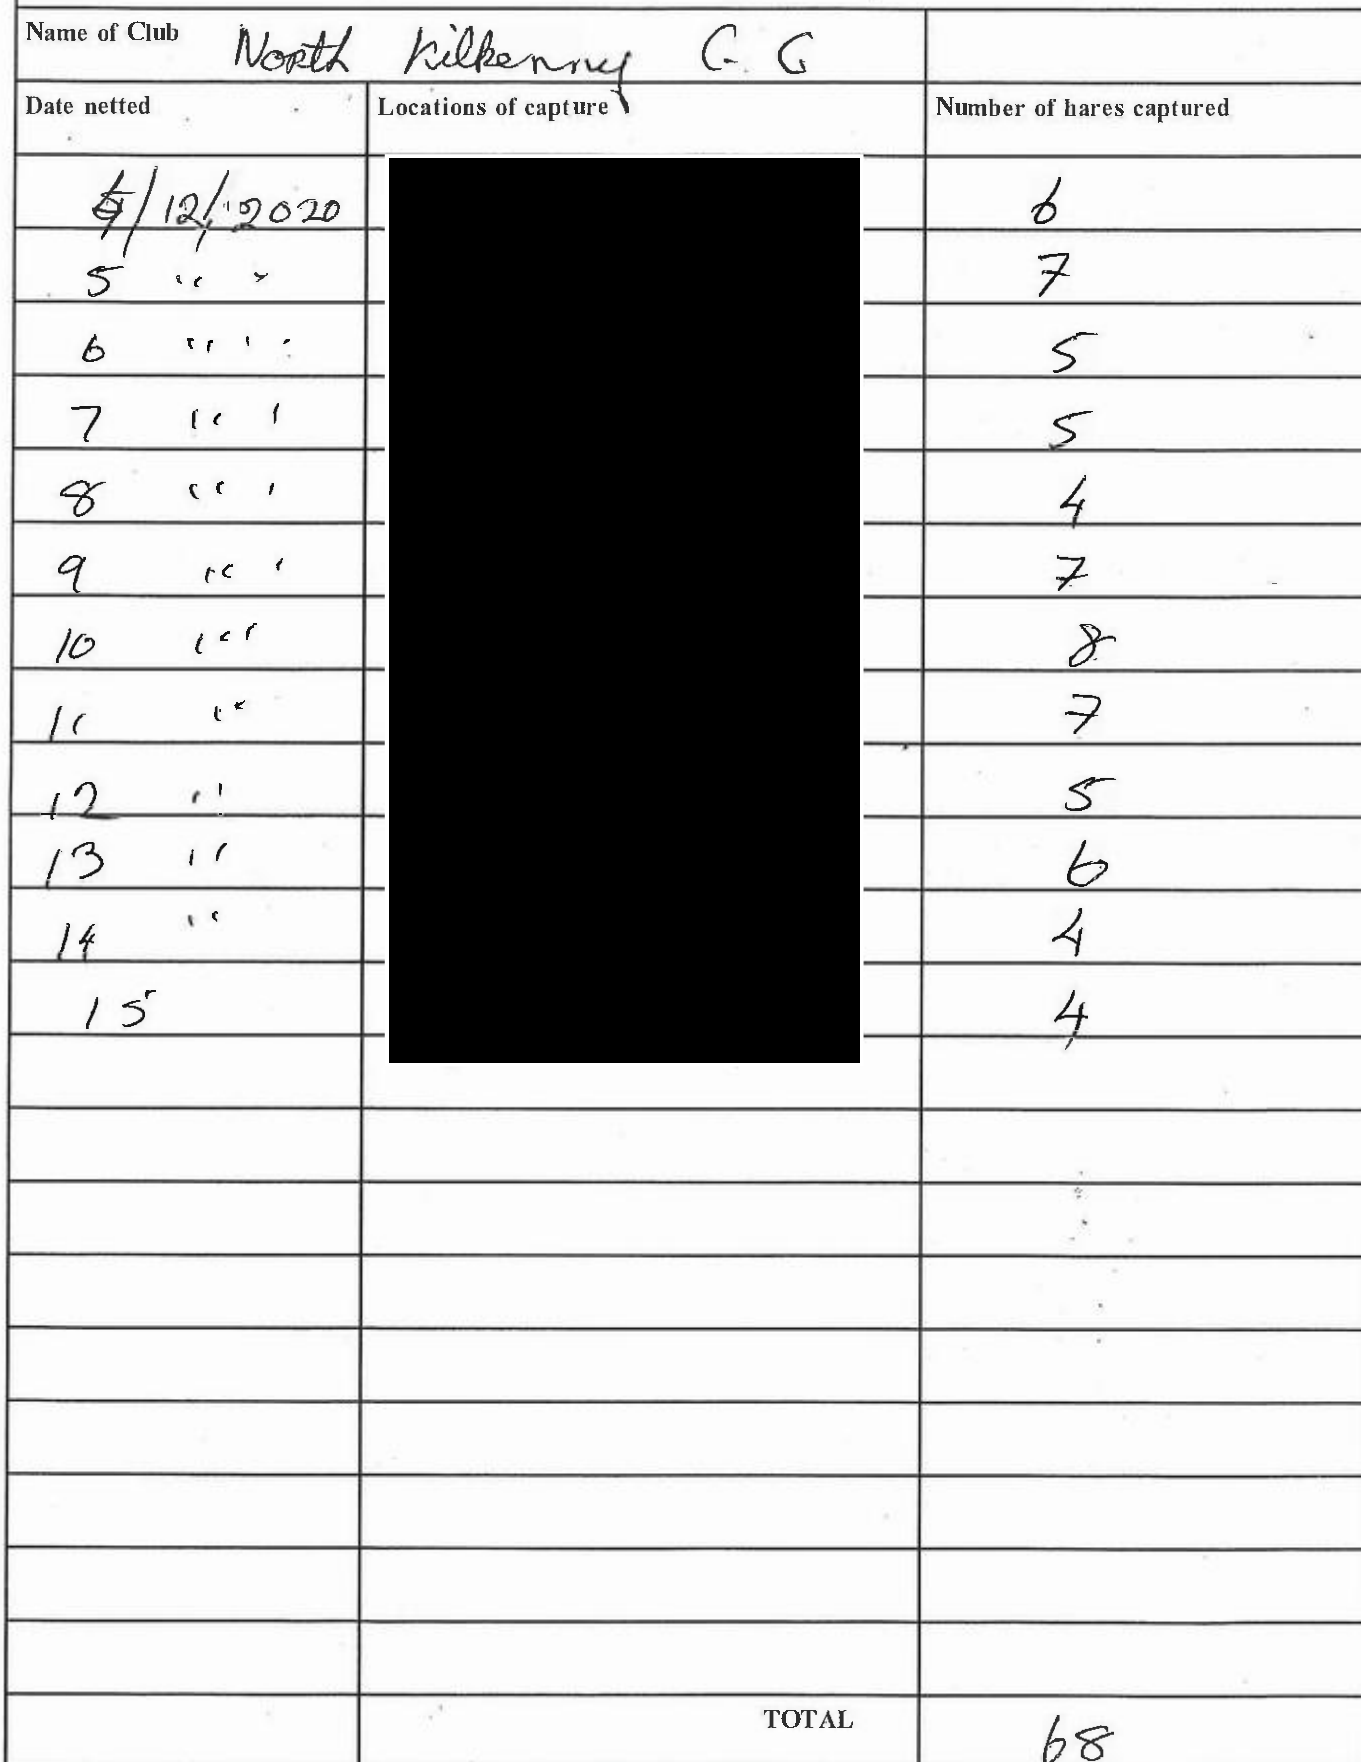 Name of Club North Kilkenny C. C
Date netted Locations of capture Number of hares captured
4/12/2020 6
5 " " 7
6 " " 5
7 " " 5
8 " " 4
9 " " 7
10 " " 8
11 " 7
12 " 5
13 " 6
14 " 4
15 4
TOTAL 68